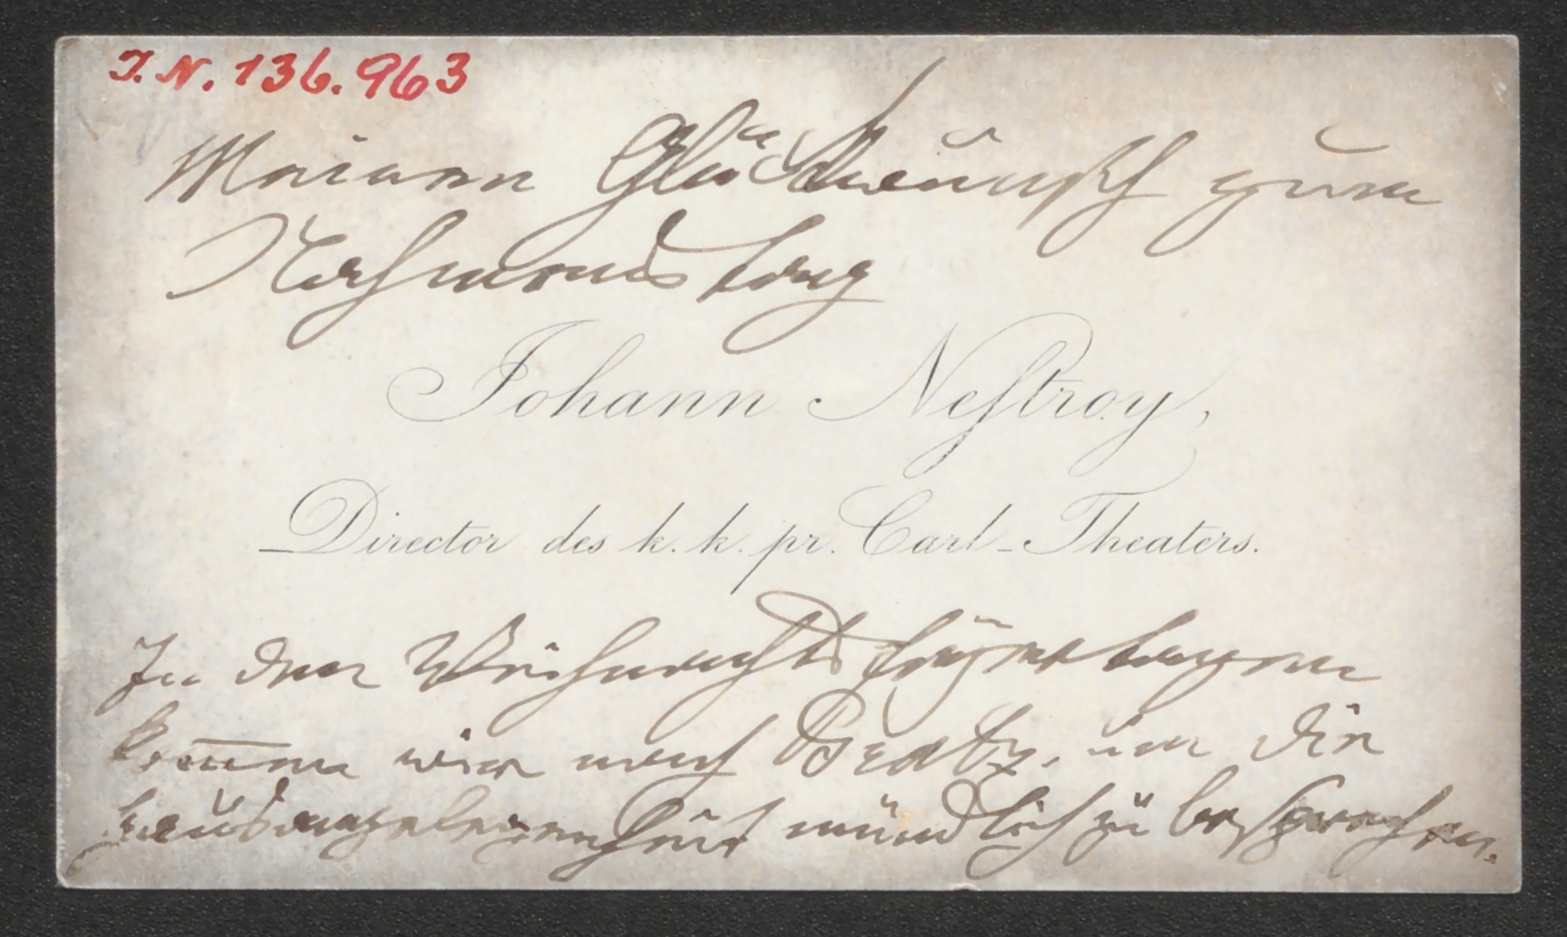 I. N. 136.963
Meinen Glückwunsch zum
Nahmenstag
Johann Nestroy,
Director des k. k. pr. Carl-Theaters.
In den Weihnachtsfeyertagen
kom̅en wir nach Gratz, um die
Hausangelegenheit mündlich zu besprechen.